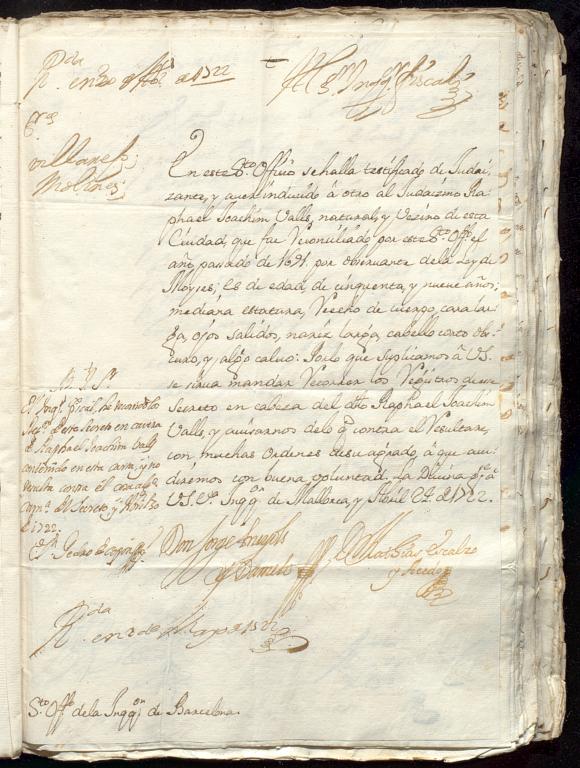 R.da en 20 de de 1722
Al S.r Inqq.r Fiscal
S.res
Villanef.
Molines
En este S.to Officio se halla testificado de Judai-
zante, y aver inducido à otro al Judaizmo Ra-
phael Joachim Valls, natural, y Vezino de esta
Ciudad, que fue Reconciliado por este S.to Off.o el
año passado de 1691. por observante de la Ley de
Moyses; es de edad, de cinquenta, y nueve años;
mediana estatura, Recho de cuerpo, cara lar-
ga, ojos salidos, nariz larga, cabello corto obs-
curo, y algo calvo: Por lo que suplicamos à V.S.
se sirva mandar Recorrer los Registros de su
Secreto en cabeza del dho Raphael Joachim
Valls, y avisarnos de lo q contra el Resultare,
con muchas ordenes de su agrado, à que acu-
diremos con buena voluntad. La Divina g.e à
V.S. Inqq.on de Mallorca, y Abril 24. de 1722.
M.Y.S.r
El Inq.r Fiscal, ha recorrido los
Reg.os deste Secreto en cavesa
de Raphael Joachim Valls
contenido en esta carta, y no
resulta contra el cosa
Secreto, y
de 1722.
D.r Pedro
Don Jorge
y Dameto
D. Mathias Escalzo
y Acedo
R.da en 2 de Mayo de 1722
S.to Off.o de la Inqq.on de Barcelona.